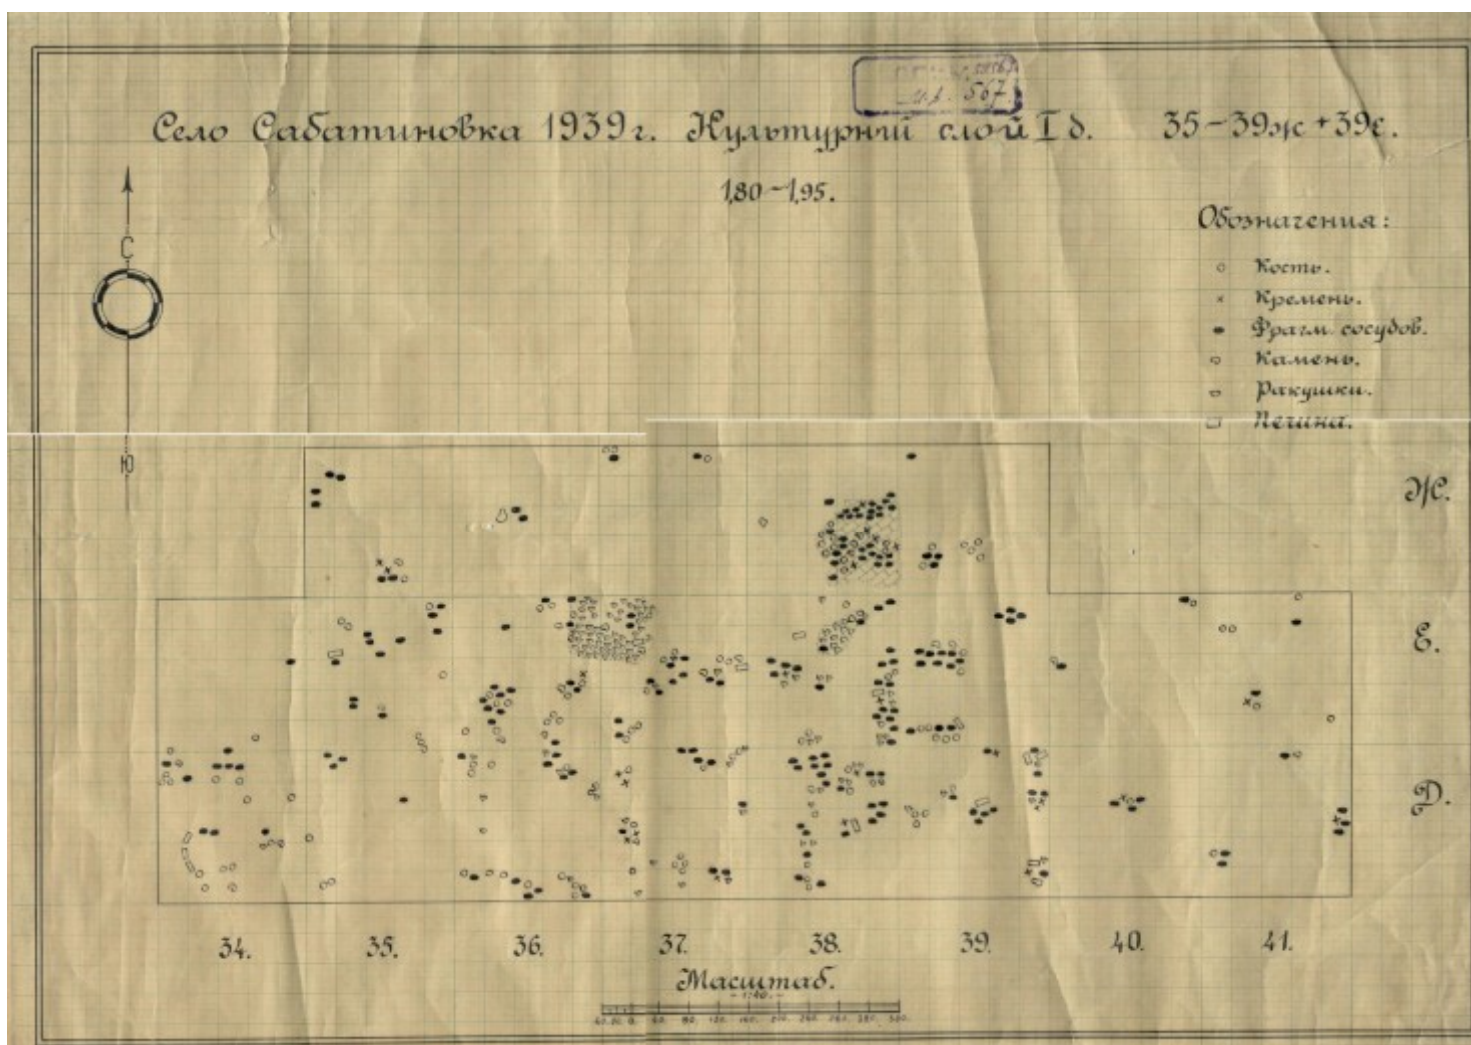 567
Село Сабатиновка 1939 г. Культурный слой I д. 35-39ж+39е.
1,80-1,95.
С
Ю
Обозначения:
Кость.
Кремень.
Фрагм. сосудов.
Камень.
Ракушки.
Печина.
Ж.
Е.
Д.
34. 35. 36. 37. 38. 39. 40. 41.
Масштаб.
-1:40.-